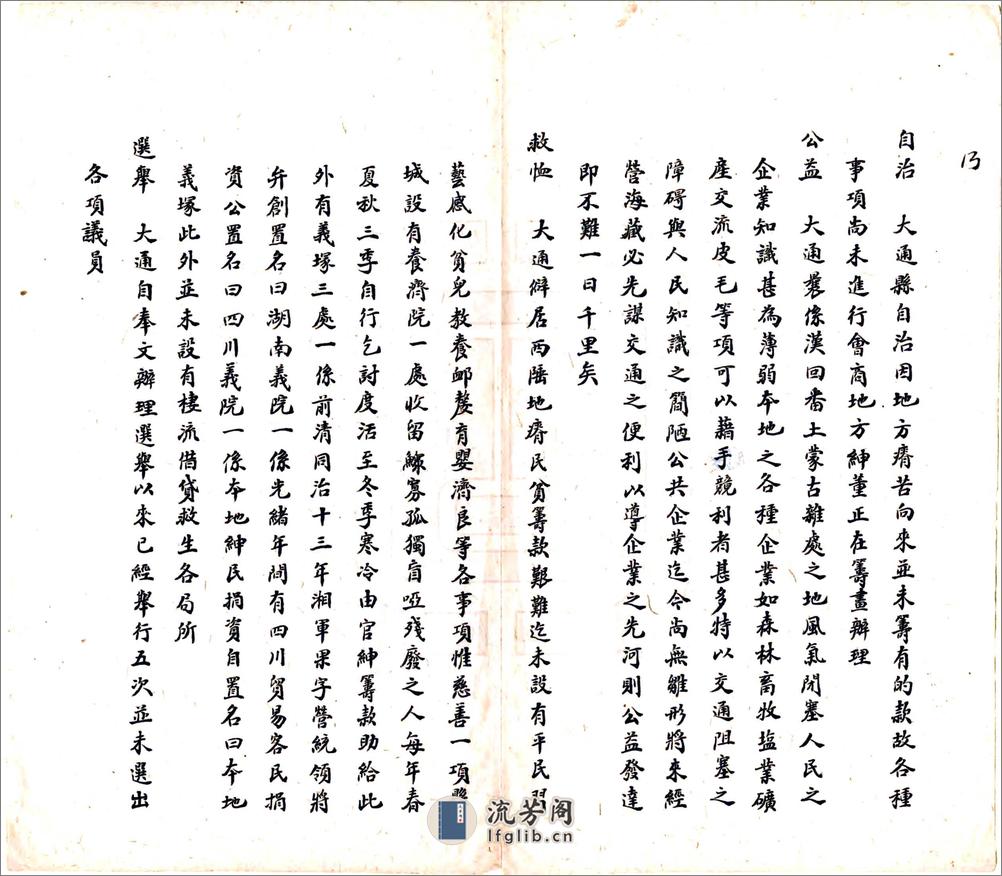 13
自治　大通縣自治因地方瘠苦向來並未籌有的款故各種
事項尚未進行會商地方紳董正在籌畫辦理
公益　大通農係漢回番土蒙古雜處之地風氣閉塞人民之
企業知識甚為薄弱本地之各種企業如森林畜牧盐業礦
產交流皮毛等項可以藉手競利者甚多特以交通阻塞之
障碍與人民知識之簡陋公共企業迄今尚無雛形將來經
營海藏必先謀交通之便利以導企業之先河則公益發達
即不難一日千里矣
救恤　大通僻居西陲地瘠民貧籌款艱難迄未設有平民習
藝感化貧兒教養邮嫠育嬰濟良等各事項惟慈善一項縣
城設有養濟院一處收留鰥寡孤獨盲啞殘廢之人每年春
夏秋三季自行乞討度活至冬季寒冷由官紳籌款助給此
外有義塚三處一係前清同治十三年湘軍果字營統領將
弁創置名曰湖南義院一係光緒年間有四川貿易客民捐
資公置名曰四川義院一係本地紳民捐資自置名曰本地
義塚此外並未設有棲流借貸救生各局所
選舉　大通自奉文辦理選舉以來已經舉行五次並未選出
各項議員
流芳阁
lfglib.cn